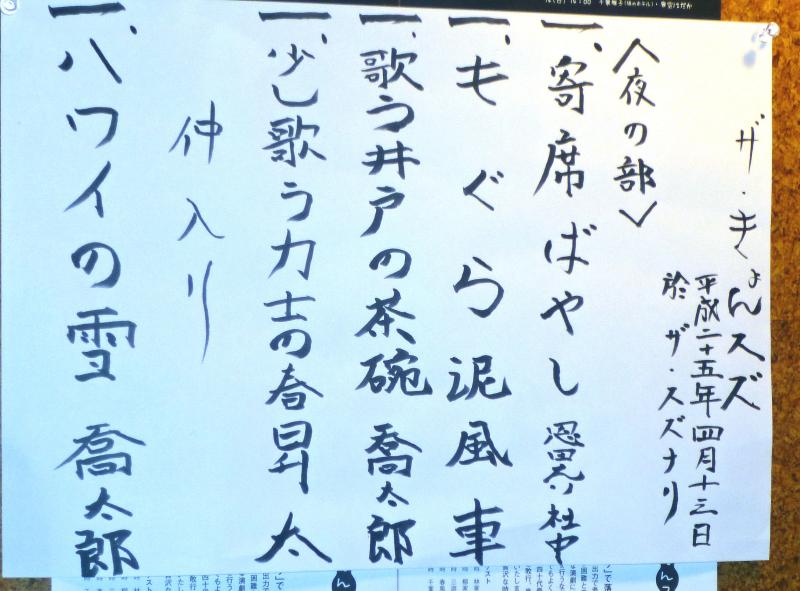 ザ・きょんスズ
平成二十五年四月十三日
於 ザ・スズナリ
〈夜の部〉
一、寄席ばやし 恩田えり社中
一、もぐら泥 風車
一、歌う井戸の茶碗 喬太郎
一、少し歌う力士の春 昇太
仲入り
一、ハワイの雪 喬太郎